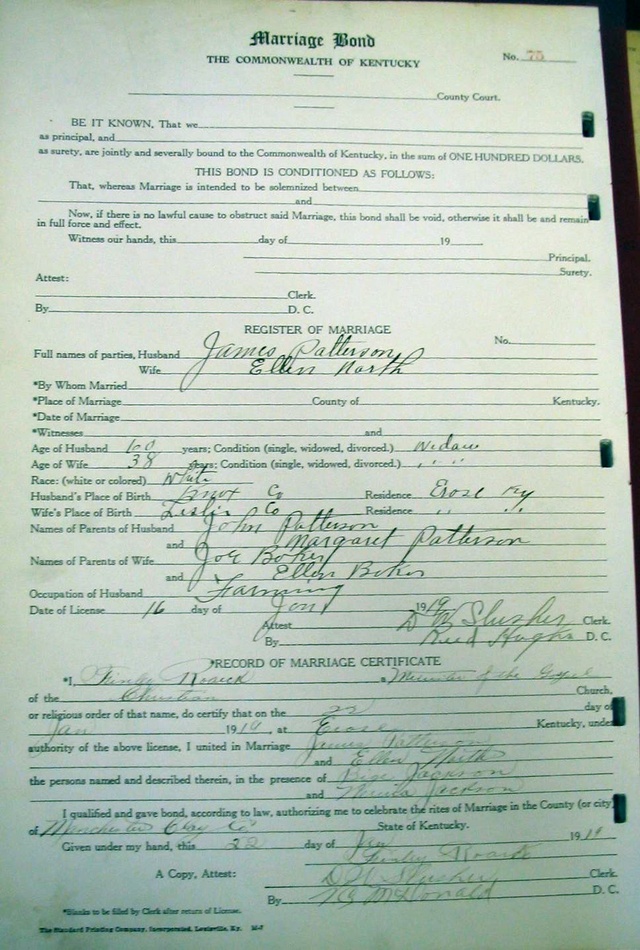 Marriage Bond
THE COMMONWEALTH OF KENTUCKY
No. 75
County Court.
BE IT KNOWN, That we
as principal, and
as surety, are jointly and severally bound to the Commonwealth of Kentucky, in the sum of ONE HUNDRED DOLLARS.
THIS BOND IS CONDITIONED AS FOLLOWS:
That, whereas Marriage is intended to be solemnized between
and
Now, if there is no lawful cause to obstruct said Marriage, this bond shall be void, otherwise it shall be and remain
in full force and effect.
Witness our hands, this day of 19
Principal.
Surety.
Attest:
Clerk.
By D. C.
REGISTER OF MARRIAGE
No.
Full names of parties, Husband James Patterson
Wife Ellen North
*By Whom Married
*Place of Marriage County of Kentucky.
*Date of Marriage
*Witnesses and
Age of Husband 60 years; Condition (single, widowed, divorced.) Widow
Age of Wife 38 years; Condition (single, widowed, divorced.) " "
Race: (white or colored) White
Husband's Place of Birth Knox Co Residence Erose Ky
Wife's Place of Birth Leslie Co Residence " "
Names of Parents of Husband John Patterson
and Margaret Patterson
Names of Parents of Wife Joe Boker
and Ellen Boker
Occupation of Husband Farming
Date of License 16 day of Jan 1919
Attest D W Slusher Clerk.
By Reed D. C.
*RECORD OF MARRIAGE CERTIFICATE
*I, Finley Roark a Minister of the Gospel
of the Christian Church,
or religious order of that name, do certify that on the 22 day of
Jan 1919, at Erose Kentucky, under
authority of the above license, I united in Marriage James Patterson
and Ellen North
the persons named and described therein, in the presence of Jackson
and Jackson
I qualified and gave bond, according to law, authorizing me to celebrate the rites of Marriage in the County (or city)
of Manchester Clay Co State of Kentucky.
Given under my hand, this 22 day of Jan 1919
Finley Roark
A Copy, Attest: D W Slusher Clerk.
By McDonald D. C.
*Blanks to be filled by Clerk after return of License.
The Standard Printing Company, Incorporated, Louisville, Ky.